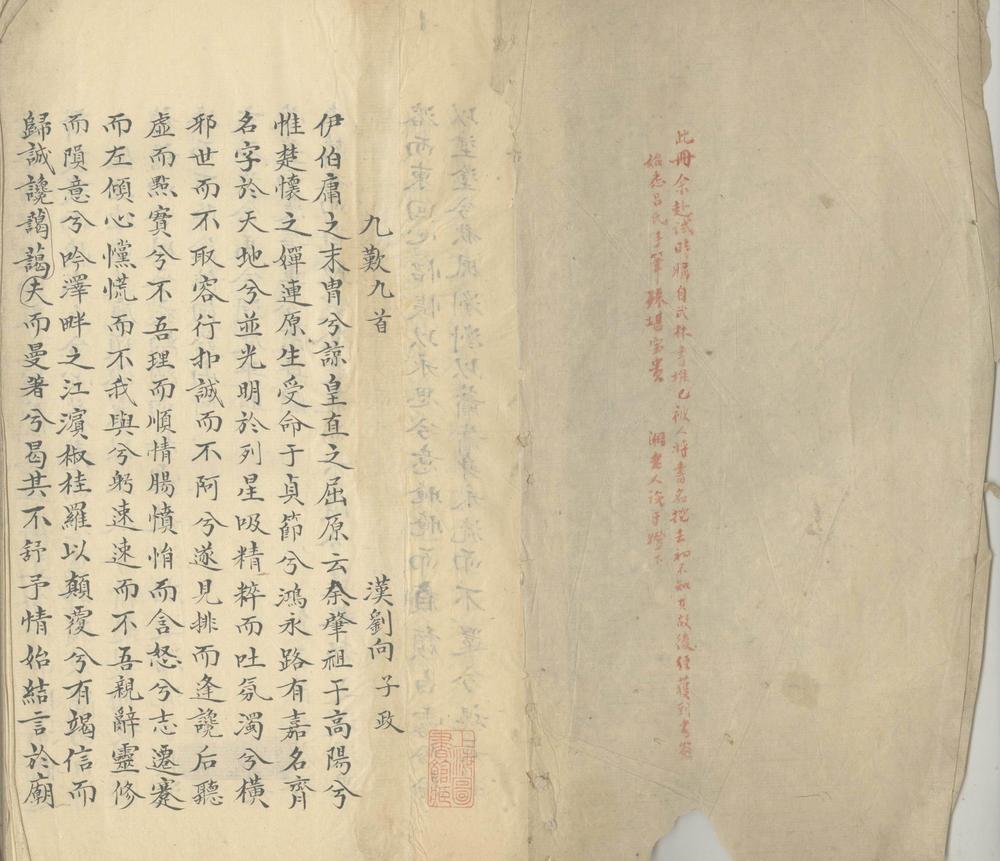 此冊余赴試時歸自武林書堆已被人將書名挖去初不知其故後經獲到書
始悉呂氏手筆珠堪宝貴 湘老人識于燈下
九歎九首 漢劉向子政
伊伯庸之末胄兮諒皇直之屈原云余肇祖于高陽兮
惟楚懷之嬋連原生受命于貞節兮鴻永路有嘉名齊
名字於天地兮並光明於列星吸精粹而吐氛濁兮橫
邪世而不取容行叩誠而不阿兮遂見排而逢讒后聽
虛而黜實兮不吾理而順情腸憤悁而含怒兮志遷蹇
而左傾心戃慌而不我與兮躬速速而不吾親辭靈修
而隕意兮吟澤畔之江濱椒桂羅以顛覆兮有竭信而
歸誠讒藹藹夫而曼著兮曷其不舒予情始結言於廟